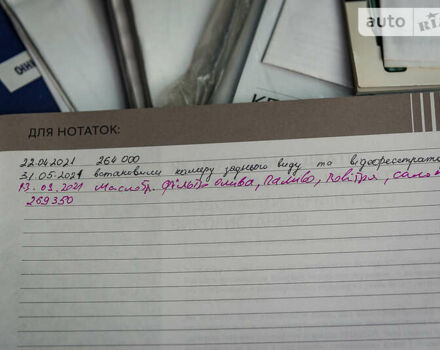 auto
RIA
ДЛЯ НОТАТОК:
22.04.2021 264 000
31.05.2021 встановили камеру заднього виду та відеореєстратор
13.09.2021 Масло фільтр олива, паливо, повітря, салон
269350